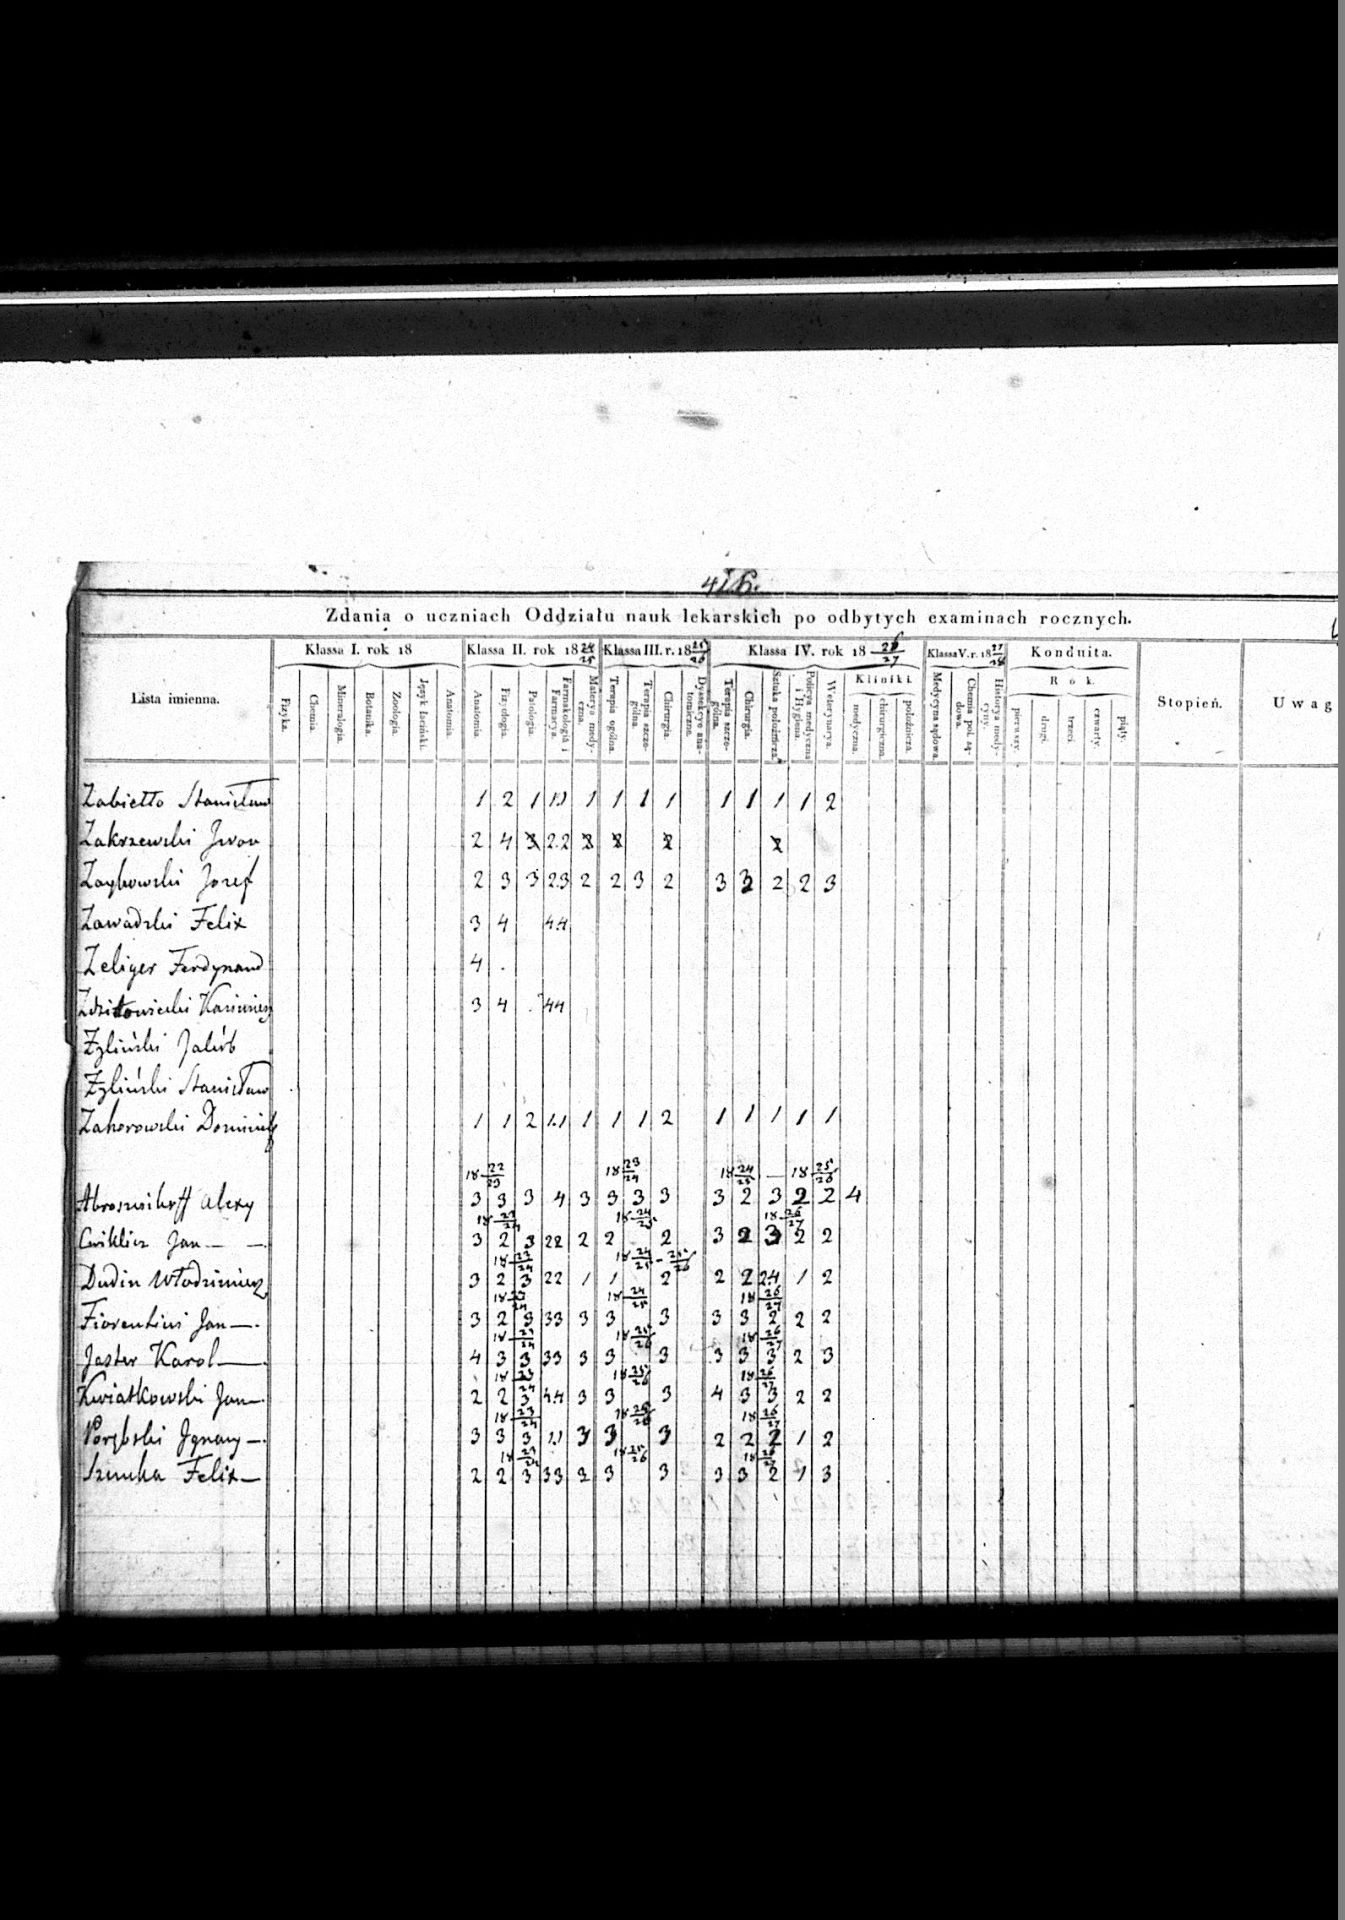 416.
Zdania o uczniach Oddziału nauk lekarskich po odbytych examinach rocznych.
Lista imienna. Klassa I. rok 18 Klassa II. rok 18 24/25 Klassa III. r. 18 25/26 Klassa IV. rok 18 26/27 Klassa V. r. 18 27/28 Konduita. Stopień. Uwag
Kliniki. Rok.
Fizyka. Chemia. Mineralogia. Botanika. Zoologia. Język łaciński. Anatomia. Anatomia Fizyologia. Patologia. Farmakologia i Farmacya. Materya medyczna. Terapia ogólna. Terapia szczególna. Chirurgia. Dyssekcye anatomiczne. Terapia szczególna. Chirurgia. Sztuka położnicza. Policya medyczna i Hygiena. Weterynarya. medyczna. chirurgiczna położnicza. Medycyna sądowa. Chemia pol. sądowa. Historya medycyny. pierwszy. drugi. trzeci. czwarty. piąty.
Zabiełło Stanisław 1 2 1 1.1 1 1 1 1 1 1 1 1 2
Zakrzewski Jwan 2 4 3 2.2 2 2 2 2
Zaykowski Jozef 2 3 3 2.3 2 2 3 2 3 3 2 2 3
Zawadzki Felix 3 4 4.4
Zeliger Ferdynand 4
Zdzitowiecki Kazimierz 3 4 44
Zyliński Jakób
Zyliński Stanisław
Zahorowski Dominik 1 1 2 1.1 1 1 1 2 1 1 1 1 1
18 22/23 18 23/24 18 24/25 — 18 25/26
Alexy 3 3 3 4 3 3 3 3 3 2 3 2 2 4
18 24/25 18 26/27
Cwiklicz Jan — — 3 2 3 22 2 2 2 3 2 3 2 2
18 24/25 - 25/26
Dudin Włodzimierz 3 2 3 22 1 1 2 2 2 2.4 1 2
18 24/25 18 26/27
Fiorentini Jan — 3 2 3 33 3 3 3 3 3 2 2 2
18 25/26 18 26/27
Jaster Karol — 4 3 3 33 3 3 3 3 3 3 2 3
18 25/26 18 26/27
Kwiatkowski Jan — 2 2 3 4.4 3 3 3 4 3 3 2 2
18 23/24 18 25/26 18 26/27
Porębski Jgnacy — 3 3 3 1.1 3 3 3 2 2 2 1 2
18 25/26
Felix — 2 2 3 33 2 3 3 3 3 2 1 3